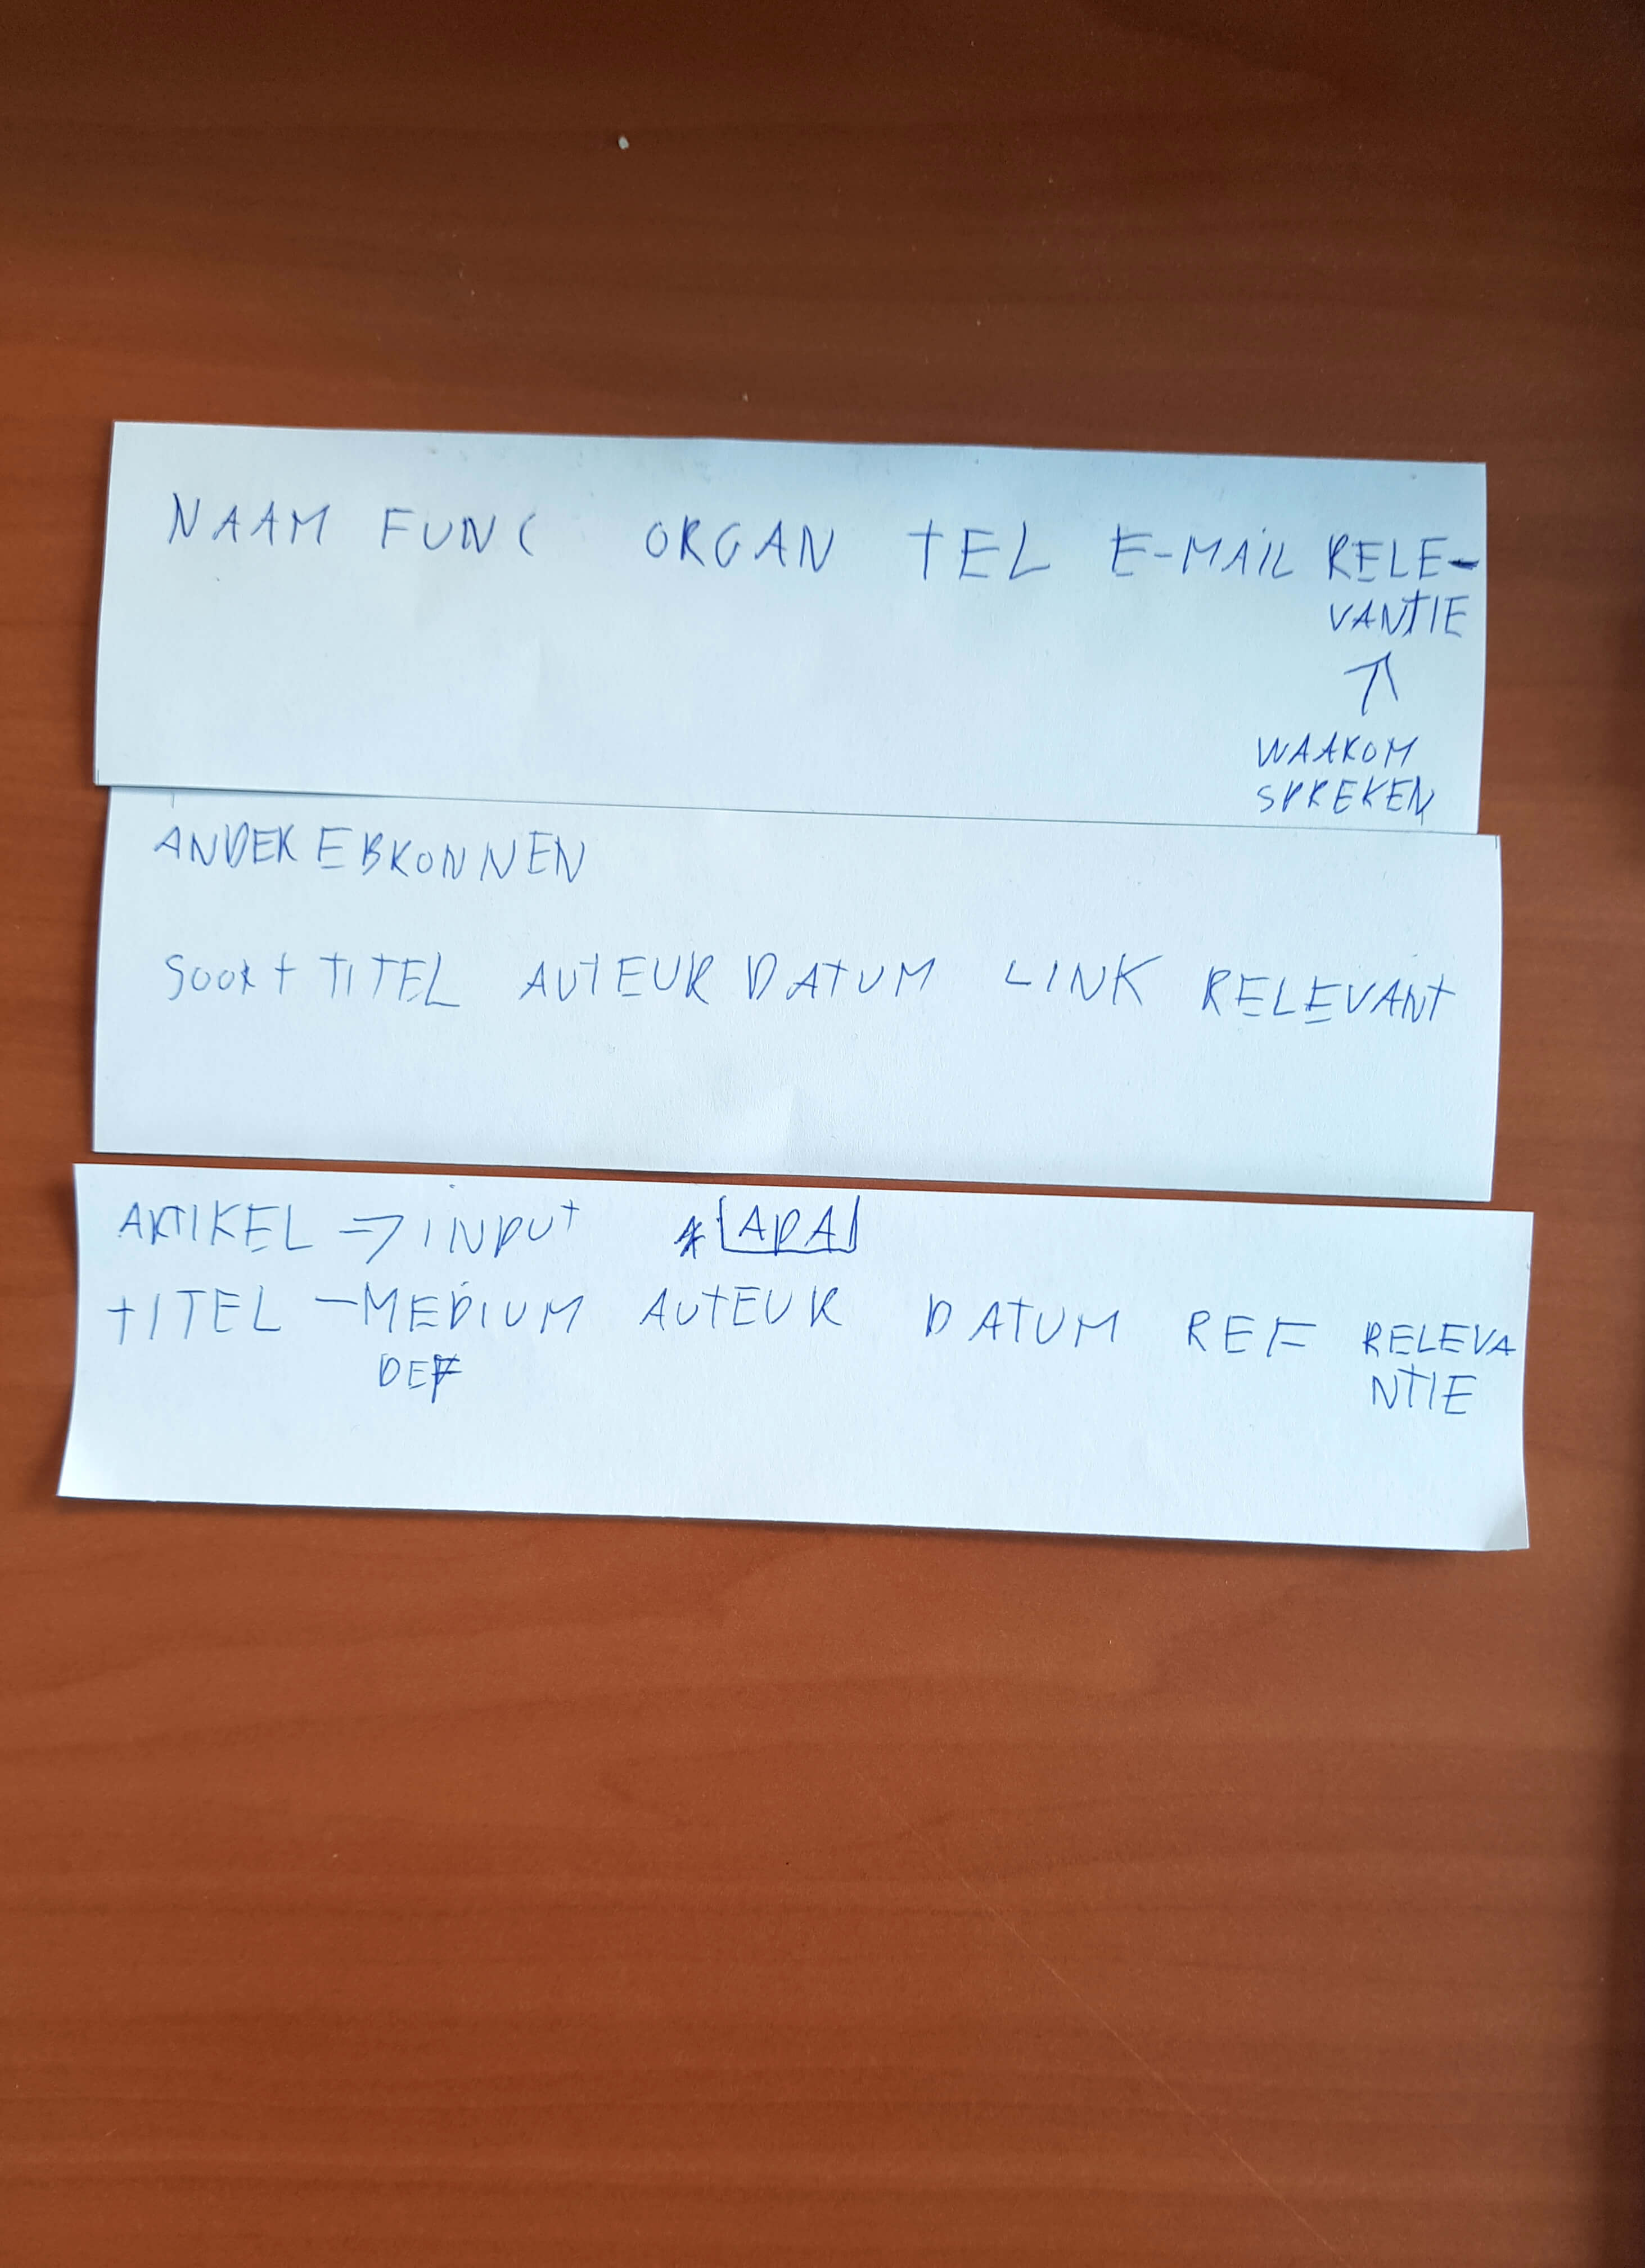 NAAM FUNC ORGAN TEL E-MAIL RELE-
VANTIE
↑
WAAROM
SPREKEN
ANDER EBRONNEN
SOORT TITEL AUTEUR DATUM LINK RELEVANT
ARTIKEL => INPUT * APA
TITEL - MEDIUM AUTEUR DATUM REF RELEVA
NTIE
DEF